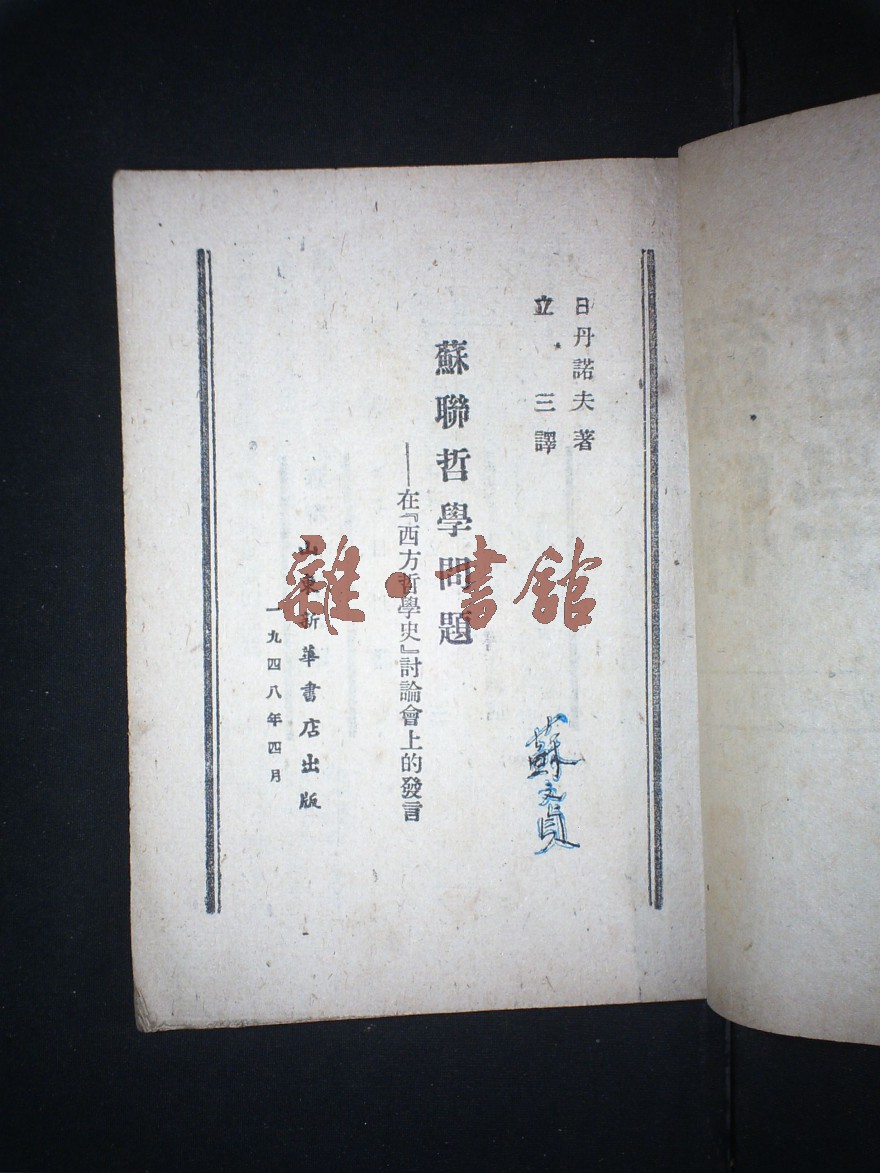 日丹諾夫著
立三譯
蘇聯哲學問題
——在『西方哲學史』討論會上的發言
山東新華書店出版
一九四八年四月
蘇文貞
雜·書館